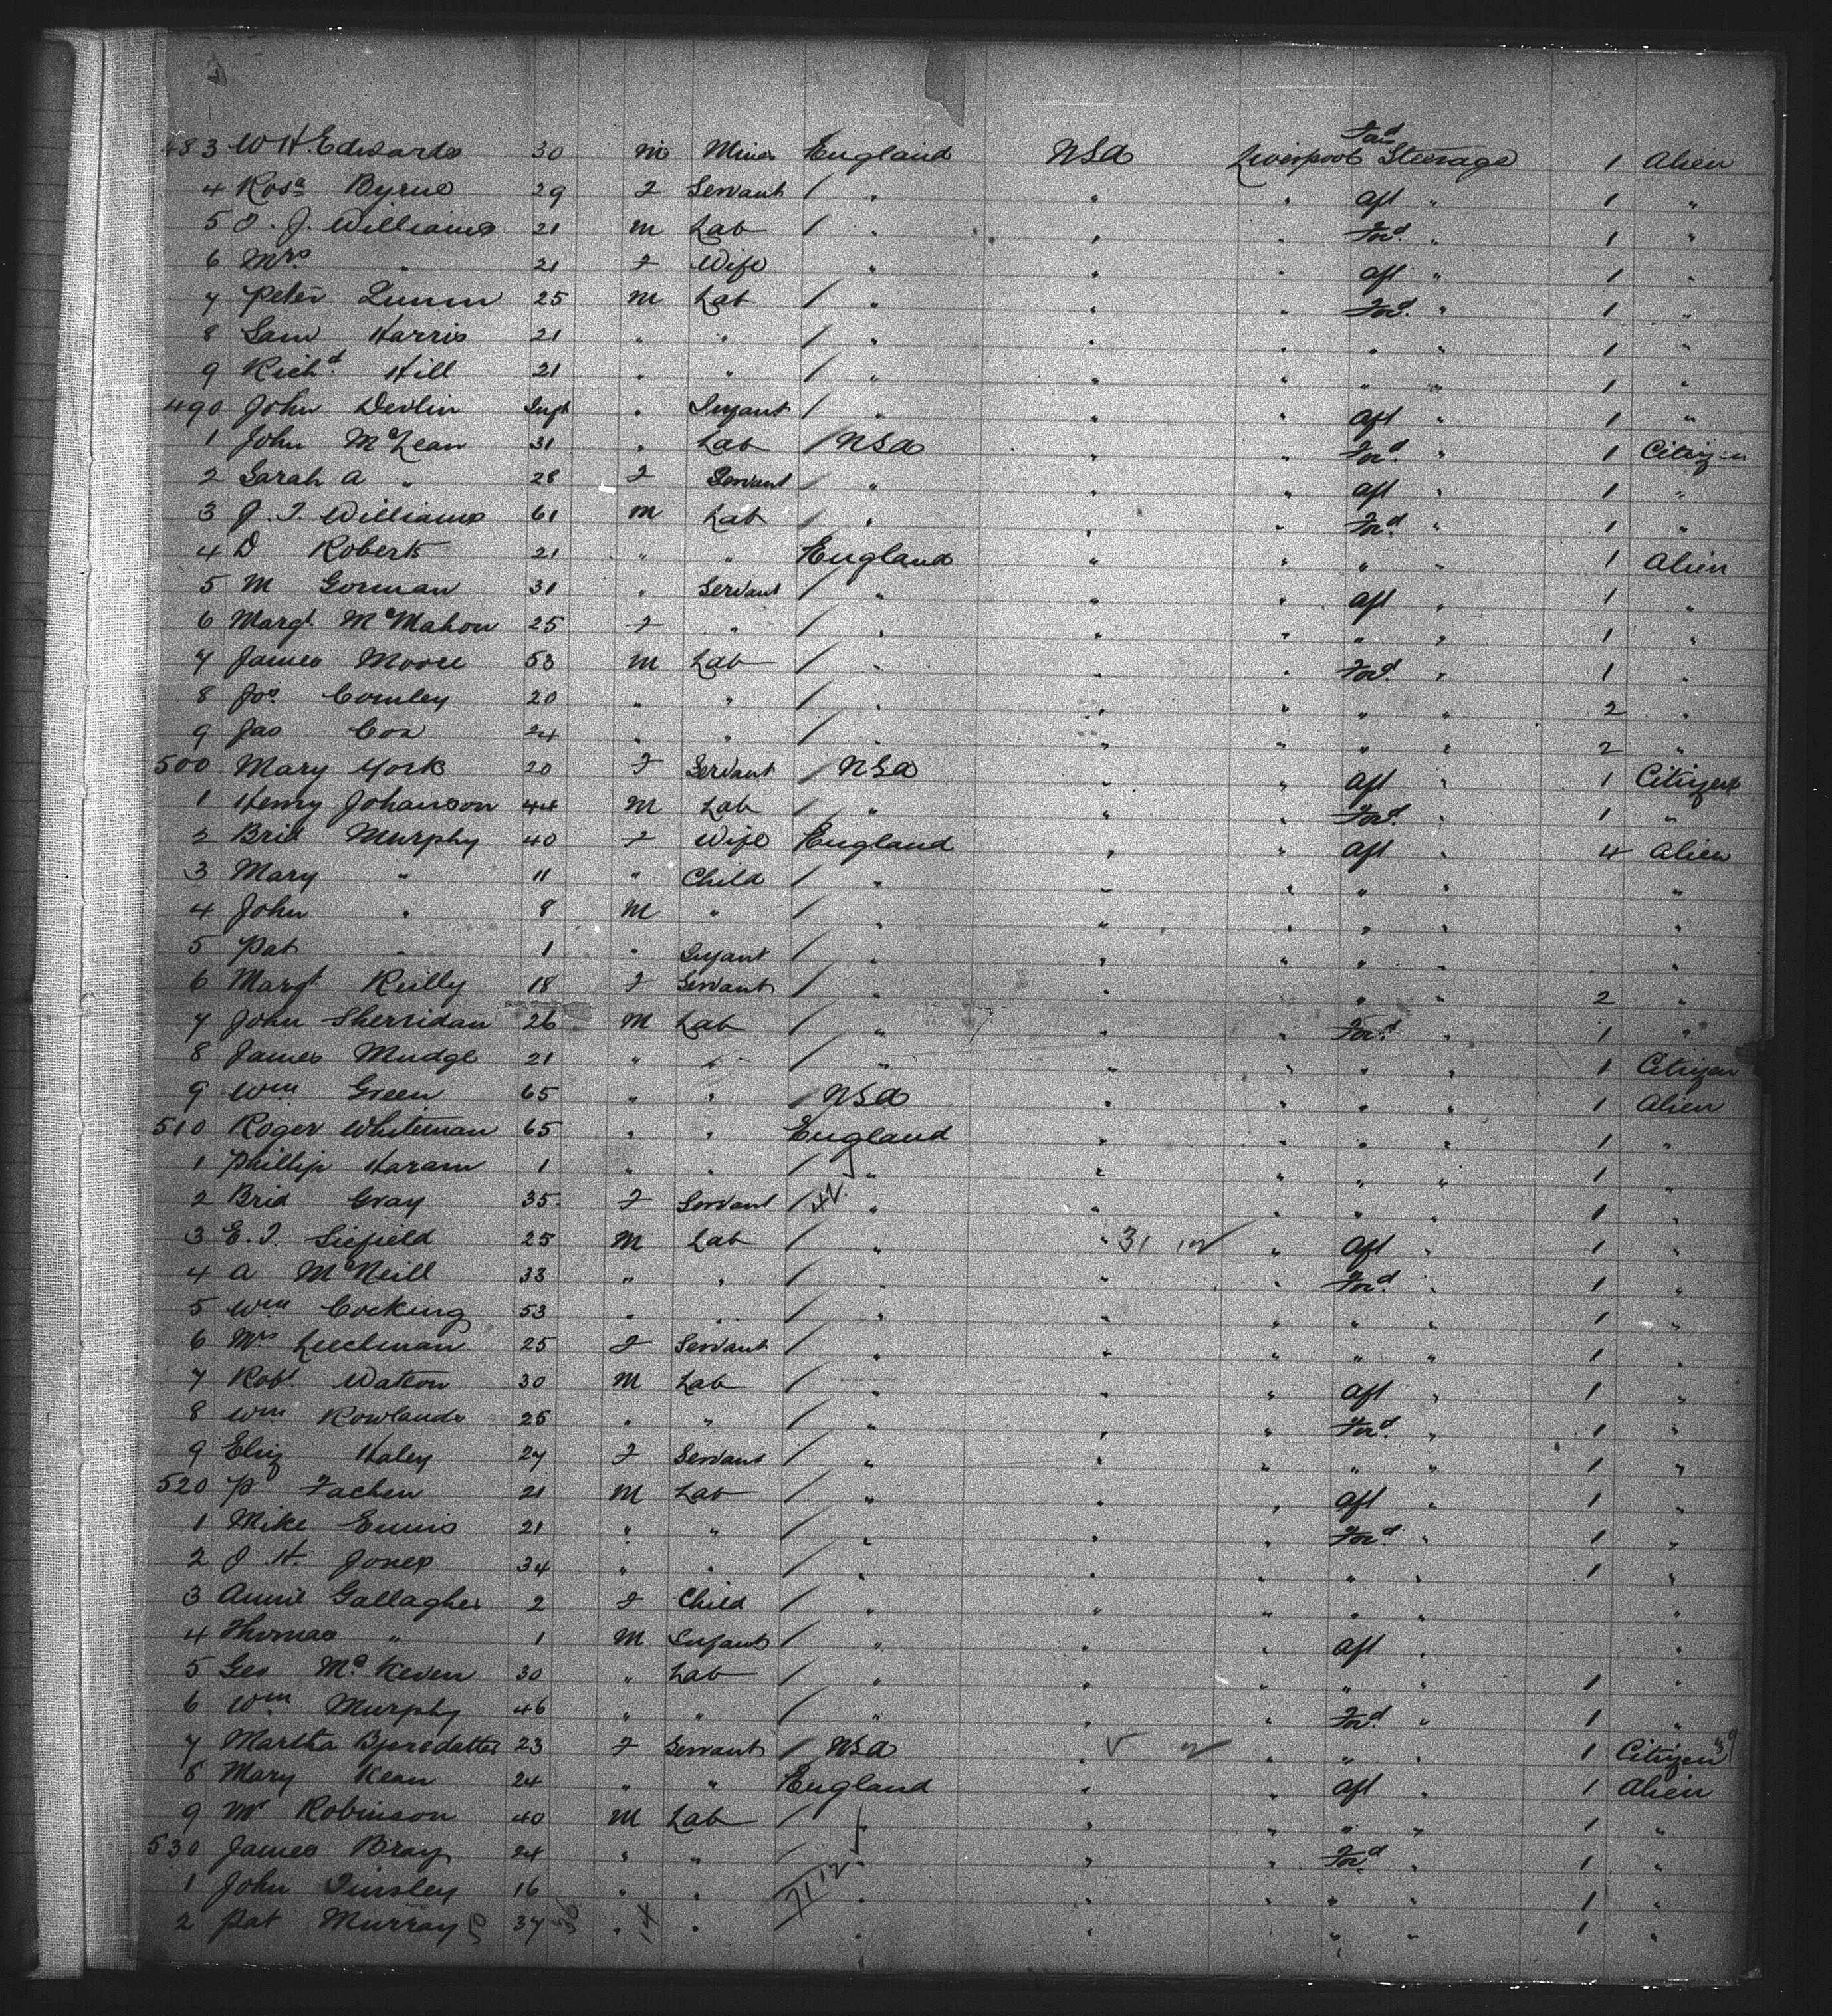 483 W H. Edwards 30 m Miner England USA Liverpool Ford Steerage 1 Alien
4 Rosa Byrne 29 F Servant / " " " Aft " 1 "
5 J. J. Williams 21 M Lab / " " " Ford. " 1 "
6 Mrs " 21 F Wife " " " Aft " 1 "
7 Peter Quinn 25 M Lab / " " " Ford. " 1 "
8 Sam Harris 21 " " / " " " " " 1 "
9 Richd Hill 21 " " / " " " " " 1 "
490 John Devlin Inft " Infant / " " " Aft " 1 "
1 John McLean 31 " Lab / USA " " Ford. " 1 Citizen
2 Sarah A " 28 F Servant / " " " Aft " 1 "
3 J. T. Williams 61 M Lab / " " " Ford. " 1 "
4 D Roberts 21 " " England " " " " 1 Alien
5 M Gorman 31 " Servant / " " " Aft " 1 "
6 Margt. McMahon 25 F " / " " " " " 1 "
7 James Moore 53 M Lab / " " " Ford. " 1 "
8 Jos. Comley 20 " " / " " " " " 2 "
9 Jas Cox 24 " " / " " " " " 2 "
500 Mary York 20 F Servant / USA " " Aft " 1 Citizen
1 Henry Johanson 44 M Lab / " " " Ford. " 1 "
2 Brid Murphy 40 F Wife England " " Aft " 4 Alien
3 Mary " 11 " Child / " " " " " "
4 John " 8 M " / " " " " " "
5 Pat " 1 " Infant / " " " " " "
6 Margt. Reilly 18 F Servant / " " " " " 2 "
7 John Sherridan 26 M Lab / " " " Ford. " 1 "
8 James Mudge 21 " " / " " " " " 1 Citizen
9 Wm Green 65 " " / USA " " " " 1 Alien
510 Roger Whiteman 65 " " England " " " " 1 "
1 Phillip Haram 1 " " / " " " " " 1 "
2 Brid Gray 35 F Servant / " " " " " 1 "
3 E. T. Siefield 25 M Lab / " " 31 " Aft " 1 "
4 A McNeill 33 " " / " " " Ford. " 1 "
5 Wm Cocking 53 " " / " " " " " 1 "
6 Mrs Leechman 25 F Servant / " " " " " 1 "
7 Robt. Watson 30 M Lab / " " " Aft " 1 "
8 Wm Rowlands 25 " " / " " " Ford. " 1 "
9 Eliz Haley 27 F Servant / " " " " " 1 "
520 P Fachen 21 M Lab / " " " Aft " 1 "
1 Mike Ennis 21 " " / " " " Ford. " 1 "
2 J. H. Jones 34 " " / " " " " " 1 "
3 Annie Gallagher 2 F Child / " " " " " "
4 Thomas " 1 M Infant / " " " Aft " "
5 Geo McKeven 30 " Lab / " " " " " 1 "
6 Wm Murphy 46 " " / " " " Ford. " 1 "
7 Martha 23 F Servant / USA " " " " 1 Citizen
8 Mary Kean 24 " " England " " Aft " 1 Alien
9 Mr Robinson 40 M Lab / " " " " " 1 "
530 James Bray 24 " " / " " " Ford " 1 "
1 John Tinsley 16 " " " " " " " 1 "
2 Pat Murray 37 " " " " " " 1 "